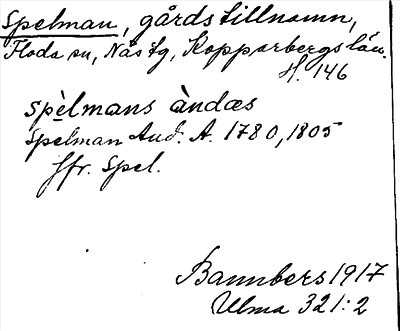 Spelman, gårdstillnamn,
Floda sn, Nås tg, Kopparbergs län.
H. 146
spèlmans àndæs
Spelman And. A. 1780, 1805
Jfr. Spel.
Bannbers 1917
Ulma 321:2